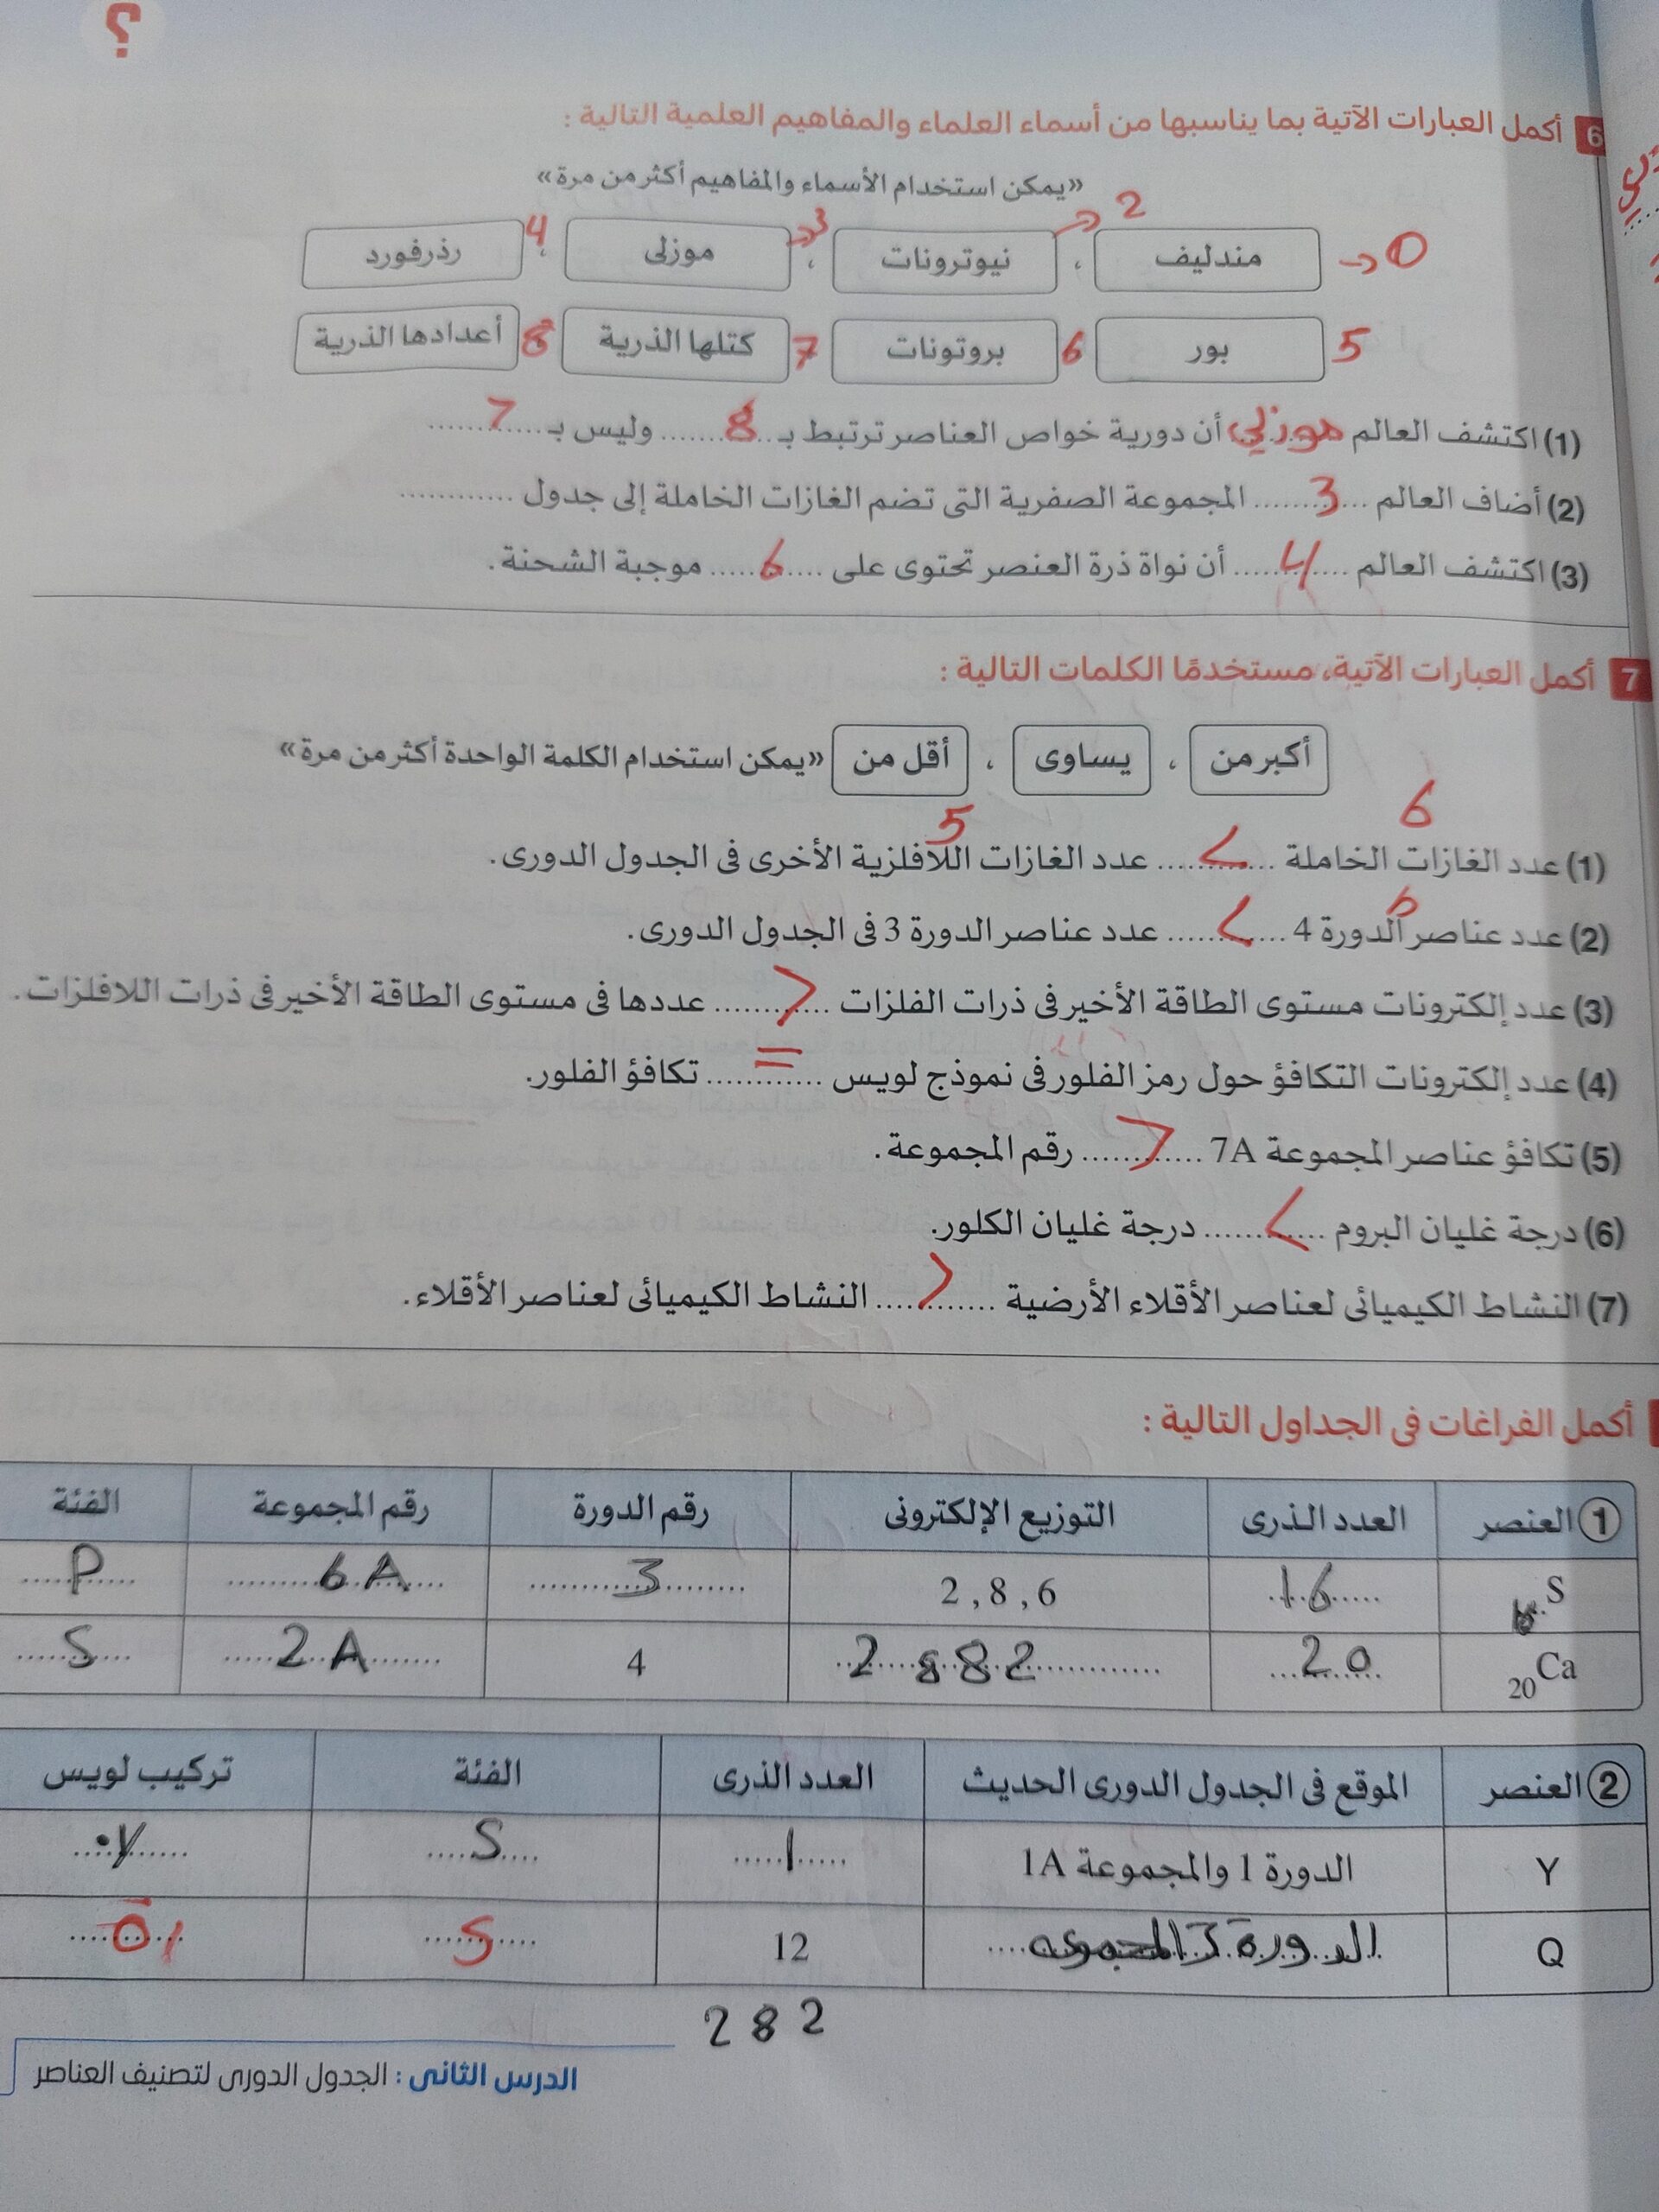 ؟
6 أكمل العبارات الآتية بما يناسبها من أسماء العلماء والمفاهيم العلمية التالية :
«يمكن استخدام الأسماء والمفاهيم أكثر من مرة»
0 مندليف ، 2 نيوترونات ، 3 موزلى ، 4 رذرفورد
5 بور 6 بروتونات 7 كتلها الذرية 8 أعدادها الذرية
(1) اكتشف العالم موزلي أن دورية خواص العناصر ترتبط بـ 8 وليس بـ 7
(2) أضاف العالم ... 3 ... المجموعة الصفرية التى تضم الغازات الخاملة إلى جدول ............
(3) اكتشف العالم ... 4 ... أن نواة ذرة العنصر تحتوى على ... 6 ... موجبة الشحنة.
7 أكمل العبارات الآتية، مستخدمًا الكلمات التالية :
أكبر من ، يساوى ، أقل من «يمكن استخدام الكلمة الواحدة أكثر من مرة»
6 5
(1) عدد الغازات الخاملة ... > ... عدد الغازات اللافلزية الأخرى فى الجدول الدورى.
(2) عدد عناصر الدورة 4 ... > ... عدد عناصر الدورة 3 فى الجدول الدورى.
(3) عدد إلكترونات مستوى الطاقة الأخير فى ذرات الفلزات ... < ... عددها فى مستوى الطاقة الأخير فى ذرات اللافلزات.
(4) عدد إلكترونات التكافؤ حول رمز الفلور فى نموذج لويس ... = ... تكافؤ الفلور.
(5) تكافؤ عناصر المجموعة 7A ... < ... رقم المجموعة.
(6) درجة غليان البروم ... > ... درجة غليان الكلور.
(7) النشاط الكيميائى لعناصر الأقلاء الأرضية ... < ... النشاط الكيميائى لعناصر الأقلاء.
أكمل الفراغات فى الجداول التالية :
1 العنصر العدد الذرى التوزيع الإلكترونى رقم الدورة رقم المجموعة الفئة
S 16 2 , 8 , 6 3 6A P
20Ca 20 2 8 8 2 4 2A S
2 العنصر الموقع فى الجدول الدورى الحديث العدد الذرى الفئة تركيب لويس
Y الدورة 1 والمجموعة 1A 1 S Y
Q الدورة 3 المجموعه 12 S
2 8 2
الدرس الثانى : الجدول الدورى لتصنيف العناصر